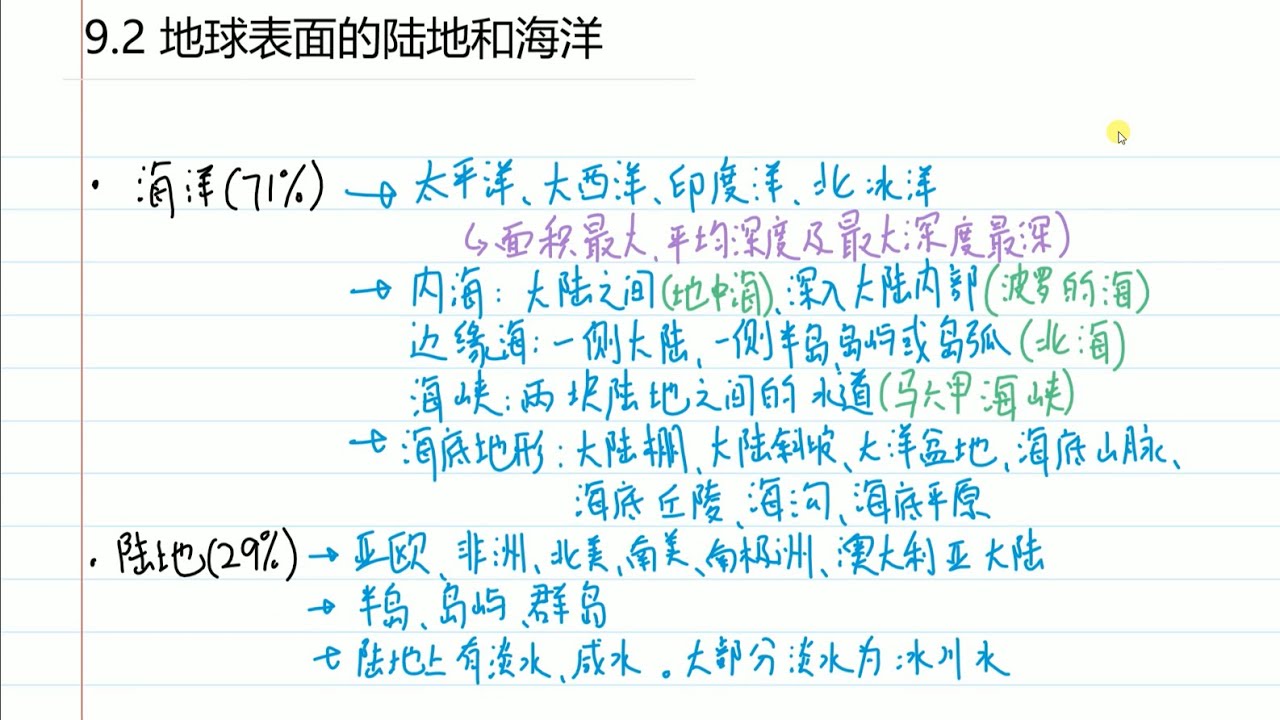 9.2 地球表面的陆地和海洋
· 海洋(71%) → 太平洋、大西洋、印度洋、北冰洋
(↳面积最大、平均深度及最大深度最深)
→ 内海：大陆之间(地中海)、深入大陆内部(波罗的海)
边缘海：一侧大陆、一侧半岛、岛屿或岛弧(北海)
海峡：两块陆地之间的水道(马六甲海峡)
→ 海底地形：大陆棚、大陆斜坡、大洋盆地、海底山脉、
海底丘陵、海沟、海底平原
· 陆地(29%) → 亚欧、非洲、北美、南美、南极洲、澳大利亚大陆
→ 半岛、岛屿、群岛
→ 陆地上有淡水、咸水。大部分淡水为冰川水